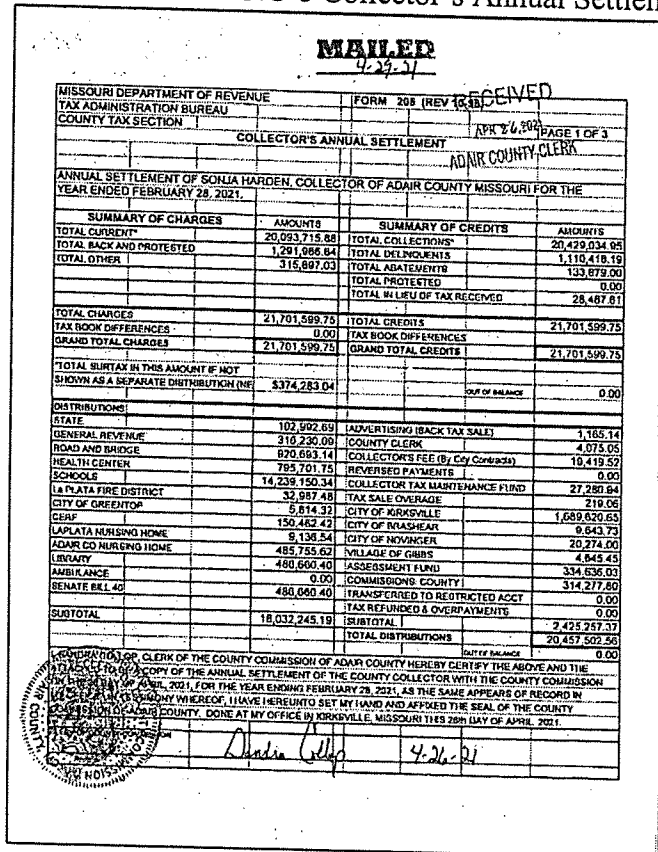 Collector's Annual Settlem
MAILED
4-29-21
MISSOURI DEPARTMENT OF REVENUE FORM 205 (REV
TAX ADMINISTRATION BUREAU RECEIVED
COUNTY TAX SECTION PAGE 1 OF 3
COLLECTOR'S ANNUAL SETTLEMENT
ADAIR COUNTY CLERK
ANNUAL SETTLEMENT OF SONJA HARDEN, COLLECTOR OF ADAIR COUNTY MISSOURI FOR THE
YEAR ENDED FEBRUARY 28, 2021.
SUMMARY OF CHARGES AMOUNTS SUMMARY OF CREDITS AMOUNTS
TOTAL CURRENT* 20,093,715.88 TOTAL COLLECTIONS* 20,429,034.95
TOTAL BACK AND PROTESTED 1,291,986.84 TOTAL DELINQUENTS 1,110,418.19
TOTAL OTHER 315,897.03 TOTAL ABATEMENTS 133,679.00
TOTAL PROTESTED 0.00
TOTAL IN LIEU OF TAX RECEIVED 28,467.61
TOTAL CHARGES 21,701,599.75 TOTAL CREDITS 21,701,599.75
TAX BOOK DIFFERENCES 0.00 TAX BOOK DIFFERENCES
GRAND TOTAL CHARGES 21,701,599.75 GRAND TOTAL CREDITS 21,701,599.75
*TOTAL SURTAX IN THIS AMOUNT IF NOT
SHOWN AS A SEPARATE DISTRIBUTION (NE $374,283.04 OUT OF BALANCE 0.00
DISTRIBUTIONS
STATE 102,992.69 ADVERTISING (BACK TAX SALE) 1,165.14
GENERAL REVENUE 310,230.09 COUNTY CLERK 4,075.05
ROAD AND BRIDGE 920,693.14 COLLECTOR'S FEE (By City Contracts) 19,419.52
HEALTH CENTER 795,701.75 REVERSED PAYMENTS 0.00
SCHOOLS 14,239,150.34 COLLECTOR TAX MAINTENANCE FUND 27,280.94
La PLATA FIRE DISTRICT 32,987.48 TAX SALE OVERAGE 219.06
CITY OF GREENTOP 5,814.32 CITY OF KIRKSVILLE 1,689,620.65
CERF 150,462.42 CITY OF BRASHEAR 9,643.73
LAPLATA NURSING HOME 9,136.54 CITY OF NOVINGER 20,274.00
ADAIR CO NURSING HOME 485,755.62 VILLAGE OF GIBBS 4,645.45
LIBRARY 480,600.40 ASSESSMENT FUND 334,636.03
AMBULANCE 0.00 COMMISSIONS COUNTY 314,277.80
SENATE BILL 40 TRANSFERRED TO RESTRICTED ACCT 0.00
TAX REFUNDED & OVERPAYMENTS 0.00
SUBTOTAL 18,032,245.19 SUBTOTAL 2,425,257.37
TOTAL DISTRIBUTIONS 20,457,502.56
OUT OF BALANCE 0.00
CLERK OF THE COUNTY COMMISSION OF ADAIR COUNTY HEREBY CERTIFY THE ABOVE AND THE
COPY OF THE ANNUAL SETTLEMENT OF THE COUNTY COLLECTOR WITH THE COUNTY COMMISSION
APRIL, 2021, FOR THE YEAR ENDING FEBRUARY 28, 2021, AS THE SAME APPEARS OF RECORD IN
WHEREOF, I HAVE HEREUNTO SET MY HAND AND AFFIXED THE SEAL OF THE COUNTY
COMMISSION OF ADAIR COUNTY. DONE AT MY OFFICE IN KIRKSVILLE, MISSOURI THIS 26th DAY OF APRIL, 2021.
4-26-21